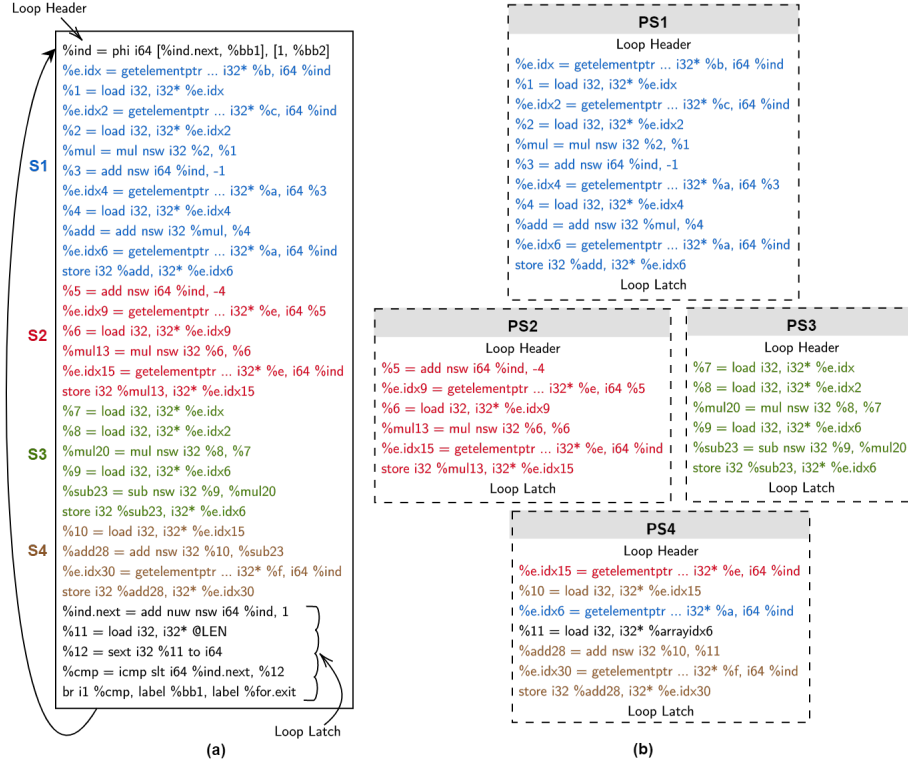 Loop Header
%ind = phi i64 [%ind.next, %bb1], [1, %bb2]
%e.idx = getelementptr ... i32* %b, i64 %ind
%1 = load i32, i32* %e.idx
%e.idx2 = getelementptr ... i32* %c, i64 %ind
%2 = load i32, i32* %e.idx2
%mul = mul nsw i32 %2, %1
S1
%3 = add nsw i64 %ind, -1
%e.idx4 = getelementptr ... i32* %a, i64 %3
%4 = load i32, i32* %e.idx4
%add = add nsw i32 %mul, %4
%e.idx6 = getelementptr ... i32* %a, i64 %ind
store i32 %add, i32* %e.idx6
%5 = add nsw i64 %ind, -4
%e.idx9 = getelementptr ... i32* %e, i64 %5
S2
%6 = load i32, i32* %e.idx9
%mul13 = mul nsw i32 %6, %6
%e.idx15 = getelementptr ... i32* %e, i64 %ind
store i32 %mul13, i32* %e.idx15
%7 = load i32, i32* %e.idx
%8 = load i32, i32* %e.idx2
S3
%mul20 = mul nsw i32 %8, %7
%9 = load i32, i32* %e.idx6
%sub23 = sub nsw i32 %9, %mul20
store i32 %sub23, i32* %e.idx6
%10 = load i32, i32* %e.idx15
S4
%add28 = add nsw i32 %10, %sub23
%e.idx30 = getelementptr ... i32* %f, i64 %ind
store i32 %add28, i32* %e.idx30
%ind.next = add nuw nsw i64 %ind, 1
%11 = load i32, i32* @LEN
%12 = sext i32 %11 to i64
%cmp = icmp slt i64 %ind.next, %12
br i1 %cmp, label %bb1, label %for.exit
Loop Latch
(a)
PS1
Loop Header
%e.idx = getelementptr ... i32* %b, i64 %ind
%1 = load i32, i32* %e.idx
%e.idx2 = getelementptr ... i32* %c, i64 %ind
%2 = load i32, i32* %e.idx2
%mul = mul nsw i32 %2, %1
%3 = add nsw i64 %ind, -1
%e.idx4 = getelementptr ... i32* %a, i64 %3
%4 = load i32, i32* %e.idx4
%add = add nsw i32 %mul, %4
%e.idx6 = getelementptr ... i32* %a, i64 %ind
store i32 %add, i32* %e.idx6
Loop Latch
PS2
Loop Header
%5 = add nsw i64 %ind, -4
%e.idx9 = getelementptr ... i32* %e, i64 %5
%6 = load i32, i32* %e.idx9
%mul13 = mul nsw i32 %6, %6
%e.idx15 = getelementptr ... i32* %e, i64 %ind
store i32 %mul13, i32* %e.idx15
Loop Latch
PS3
Loop Header
%7 = load i32, i32* %e.idx
%8 = load i32, i32* %e.idx2
%mul20 = mul nsw i32 %8, %7
%9 = load i32, i32* %e.idx6
%sub23 = sub nsw i32 %9, %mul20
store i32 %sub23, i32* %e.idx6
Loop Latch
PS4
Loop Header
%e.idx15 = getelementptr ... i32* %e, i64 %ind
%10 = load i32, i32* %e.idx15
%e.idx6 = getelementptr ... i32* %a, i64 %ind
%11 = load i32, i32* %arrayidx6
%add28 = add nsw i32 %10, %11
%e.idx30 = getelementptr ... i32* %f, i64 %ind
store i32 %add28, i32* %e.idx30
Loop Latch
(b)